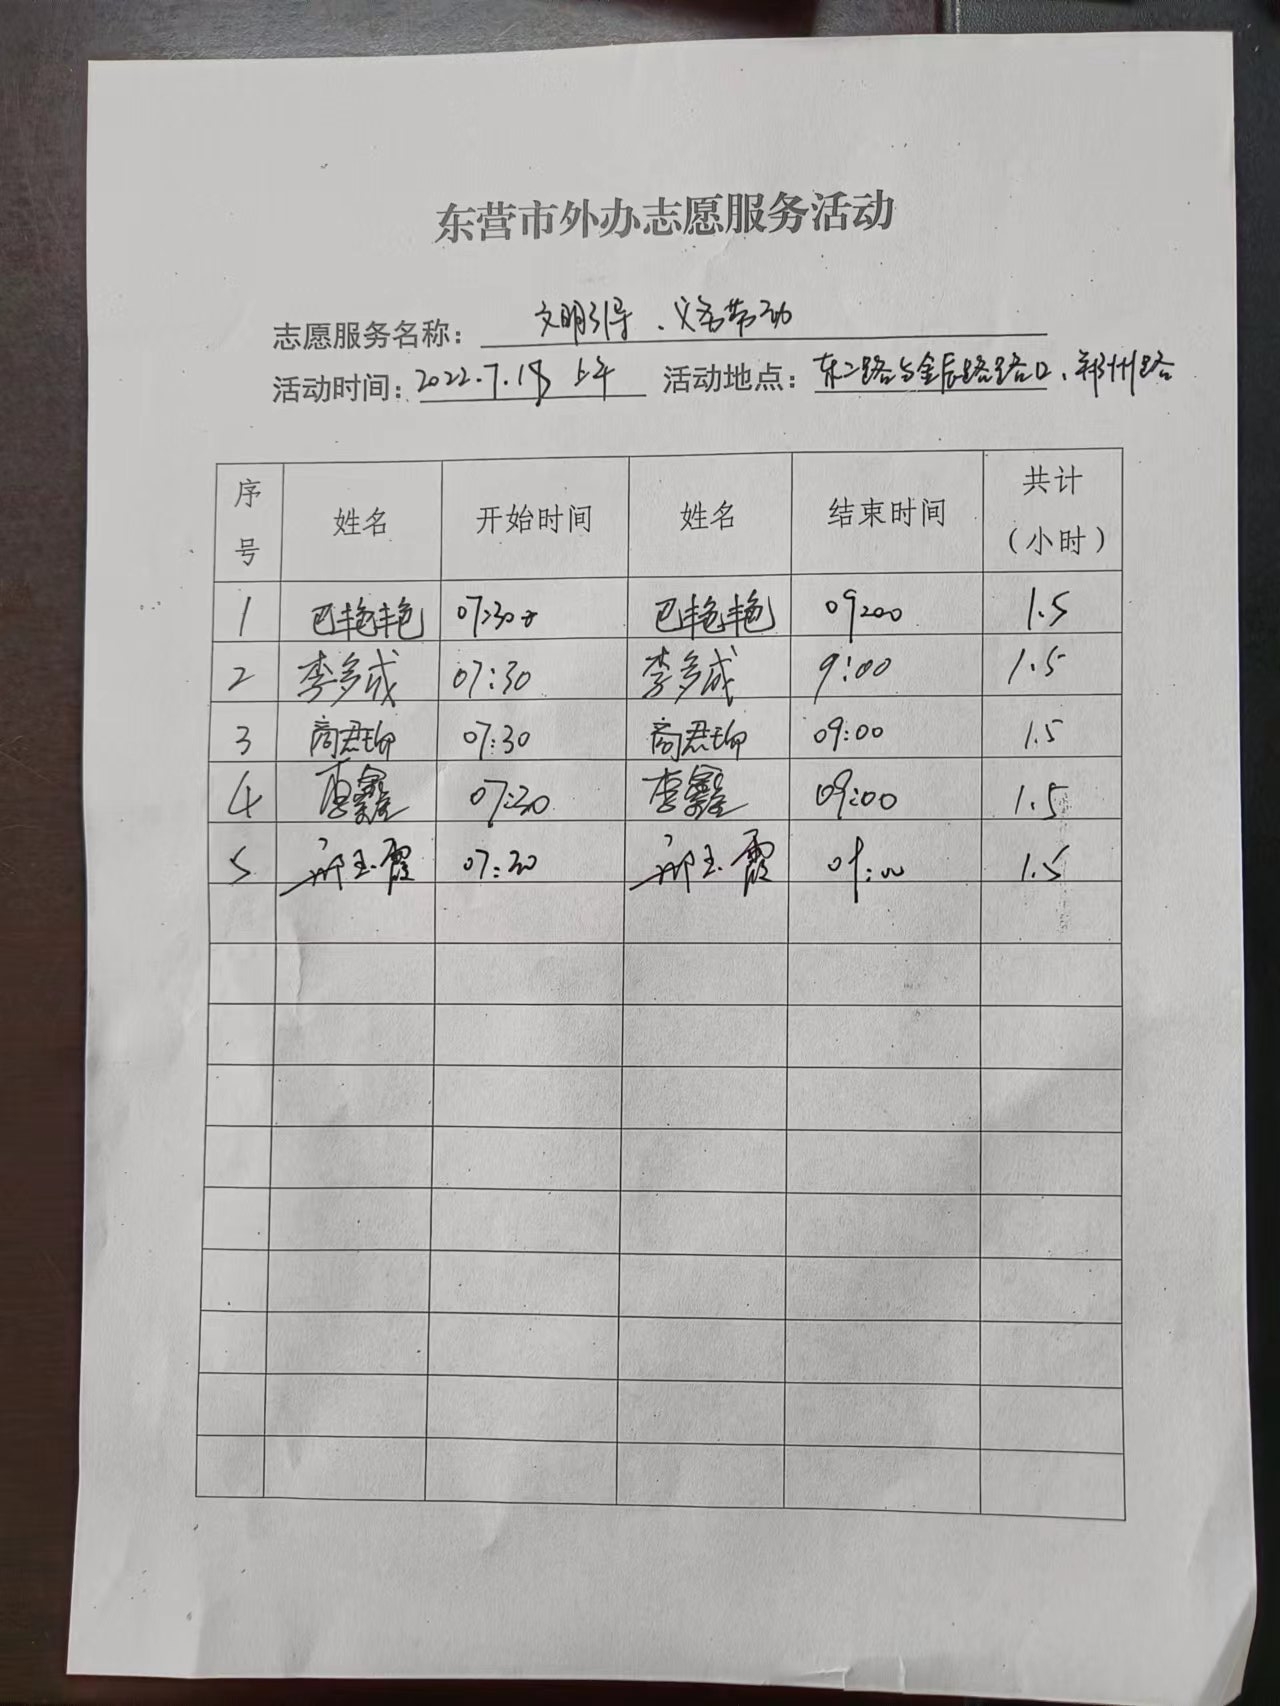 东营市外办志愿服务活动
志愿服务名称：文明引导、义务劳动
活动时间：2022.7.18 上午 活动地点：东二路与金辰路路口、郑州路
序号 姓名 开始时间 姓名 结束时间 共计（小时）
1 巴艳艳 07:30 巴艳艳 09:00 1.5
2 李多成 07:30 李多成 9:00 1.5
3 商君 07:30 商君 09:00 1.5
4 李鑫 07:30 李鑫 09:00 1.5
5 玉霞 07:30 玉霞 09:00 1.5